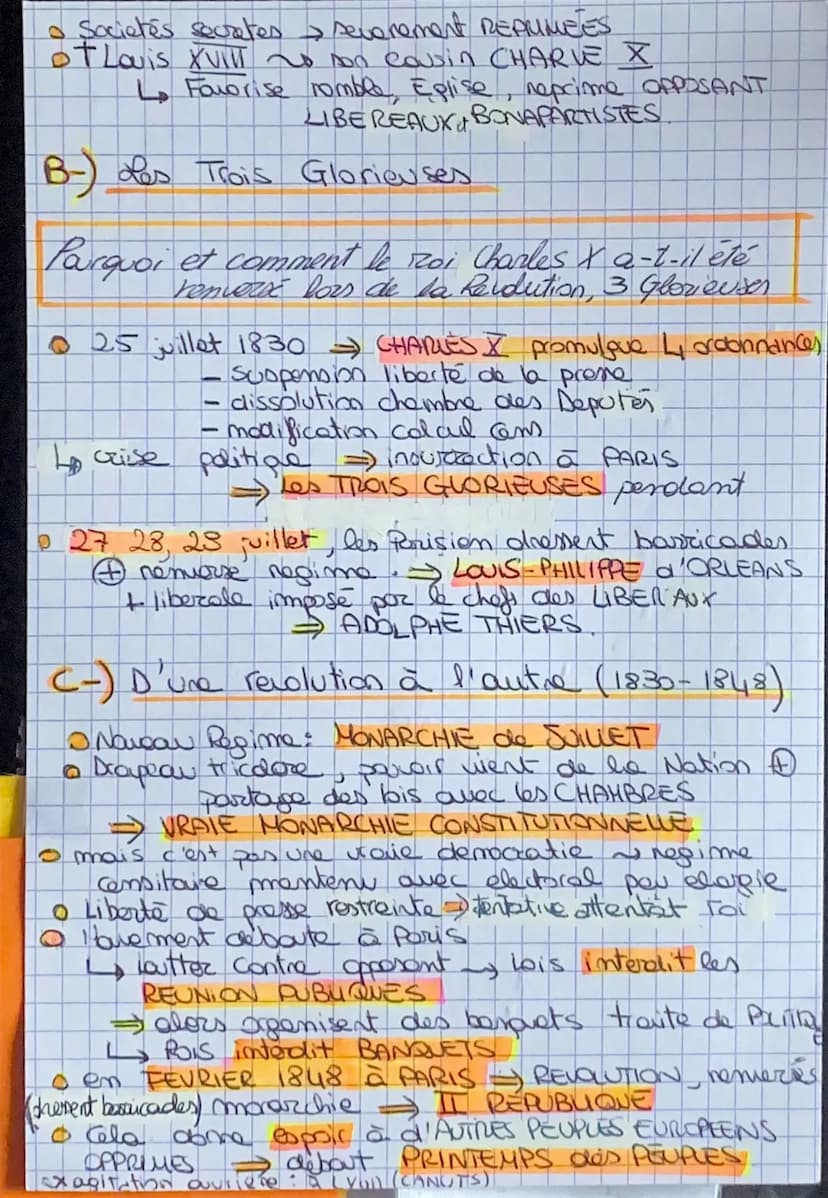 • Sociétés secrètes → sévèrement REPRIMÉES
• † Louis XVIII ~> son cousin CHARLE X
↳ Favorise noble, Eglise, reprime OPPOSANT
LIBEREAUX & BONAPARTISTES.
B-) Les Trois Glorieuses
Parquoi et comment le roi Charles X a-t-il été
renversé lors de la Révolution, 3 Glorieuses
• 25 juillet 1830 ⇒ CHARLES X promulgue 4 ordonnances
- suspension liberté de la presse
- dissolution chambre des Deputés
- modification calcul cens
↳ crise politique ⇒ insurrection à PARIS
⇒ Les TROIS GLORIEUSES pendant
• 27, 28, 29 juillet, les Parisien dressent barricades
⊕ renverse regime. ⇒ LOUIS-PHILIPPE d'ORLEANS
+ liberale imposé par le chefs des LIBERAUX
⇒ ADOLPHE THIERS.
C-) D'une revolution à l'autre (1830-1848)
• Nouveau Regime: MONARCHIE de JUILLET
• Drapeau tricolore, pouvoir vient de la Nation ⊕
partage des lois avec les CHAMBRES
⇒ VRAIE MONARCHIE CONSTITUTIONNELLE
• mais c'est pas une vraie democratie ~> regime
censitaire maintenu avec electoral peu
• Liberté de presse restreinte ⇒ tentative attentat roi
• Mouvement debute à Paris
↳ lutter contre opposant → lois interdit les
REUNION PUBLIQUES
⇒ alors organisent des banquets traite de
↳ ROIS interdit BANQUETS
• en FEVRIER 1848 à PARIS ⇒ REVOLUTION, renversés
(dressent barricades) monarchie ⇒ II REPUBLIQUE
• Cela donne espoir à d'AUTRES PEUPLES EUROPEENS
OPPRIMES ⇒ début PRINTEMPS des PEUPLES
agitation ouvrière : à Lyon (CANUTS)